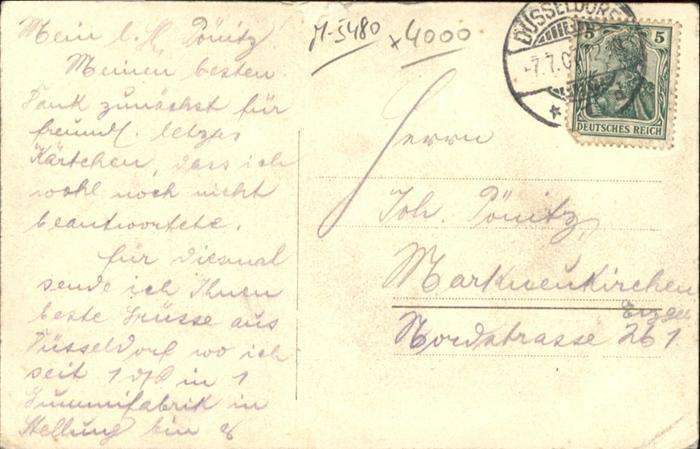 Mein l. H. Pönitz
Meinen besten
Dank zunächst für
freundl. letztes
Kärtchen, dass ich
wohl noch nicht
beantwortete.
Für diesmal
sende ich Ihnen
beste Grüsse aus
Düsseldorf wo ich
seit 1 ds in 1
Gummifabrik in
Stellung bin
M-5480
x4000
DÜSSELDORF
-7.7.0
5 5
DEUTSCHES REICH
Herrn
Joh. Pönitz,
Markneukirchen
Erzgeb
Nordstrasse 261